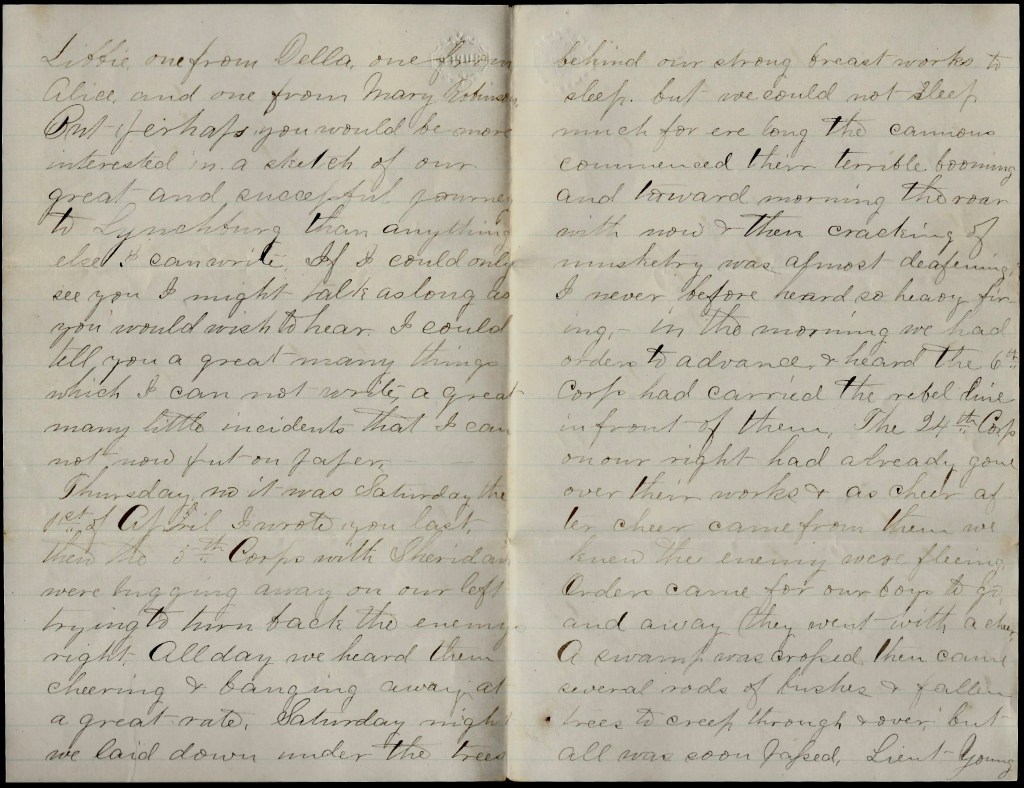 Libbie, one from Della, one from
Alice, and one from Mary Robinson.
But perhaps you would be more
interested in a sketch of our
great and successful journey
to Lynchburg than anything
else I can write. If I could only
see you I might talk as long as
you would wish to hear. I could
tell you a great many things
which I can not write, a great
many little incidents that I can
not now put on paper.
Thursday, no it was Saturday the
1st of April I wrote you last,
then the 5th Corps with Sheridan
were tugging away on our left
trying to turn back the enemys
right. All day we heard them
cheering & banging away at
a great rate. Saturday night
we laid down under the trees
behind our strong breast works to
sleep. but we could not sleep
much for ere long the cannons
commenced their terrible booming
and toward morning the roar
with now & then cracking of
musketry was almost deafening.
I never before heard so heavy fir-
ing,- in the morning we had
orders to advance, & heard the 6th
Corp had carried the rebel line
in front of them. The 24th Corp
on our right had already gone
over their works & as cheer af
ter cheer came from them we
knew the enemy were fleeing.
Orders came for our boys to go
and away they went with a cheer.
A swamp was crossed then came
several rods of bushes & fallen
trees to creep through & over but
all was soon passed. Lieut Young